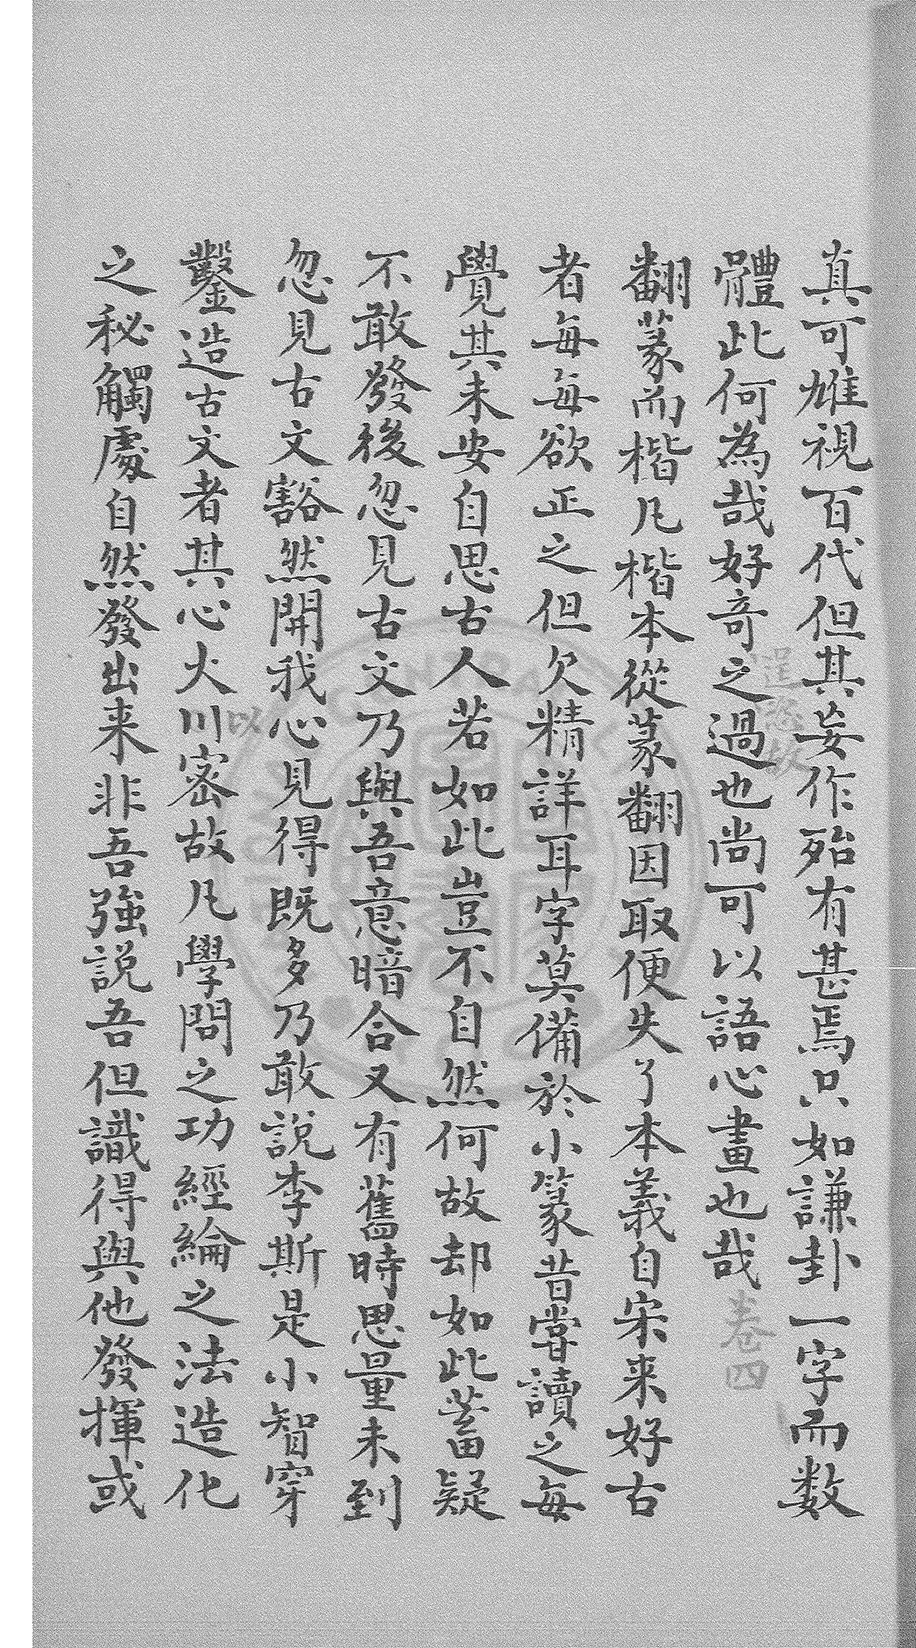 真可雄視百代但其妄作殆有甚焉只如謙卦一字而数
逞恣故
體此何為哉好奇之過也尚可以語心畫也哉 卷四
翻篆而楷凡楷本從篆翻因取便失了本義自宋来好古
者每每欲正之但欠精詳耳字莫備於小篆昔嘗讀之每
覺其未安自思古人若如此豈不自然何故却如此蓄疑
不敢發後忽見古文乃與吾意暗合又有舊時思量未到
忽見古文豁然開我心見得既多乃敢說李斯是小智穿
以
鑿造古文者其心大川密故凡學問之功經綸之法造化
之秘觸處自然發出来非吾強說吾但識得與他發揮或